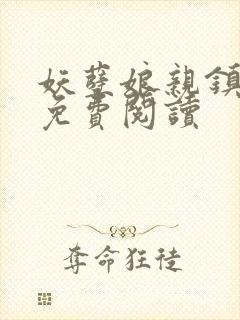 妖孽娘親鎮
免費閱讀
奪命狂徒